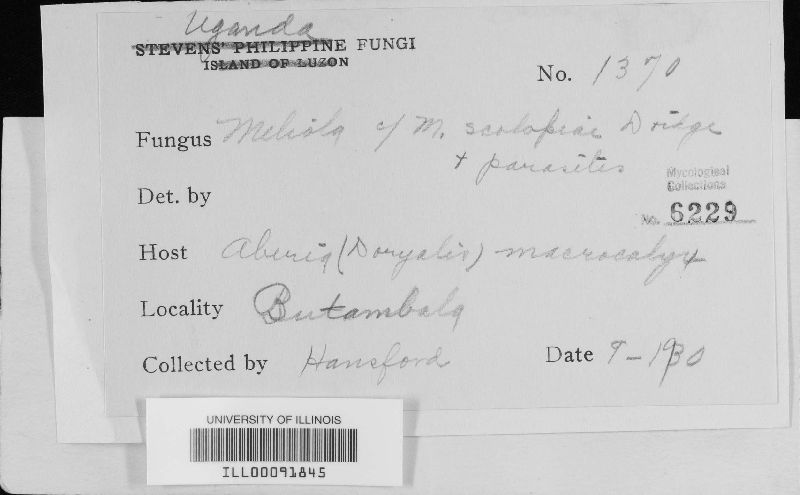 Uganda
STEVENS' PHILIPPINE FUNGI
ISLAND OF LUZON
No. 1370
Fungus Meliola cf M. scolopiae Doidge
+ parasites
Mycological
Collections
No. 6229
Det. by
Host Aberia (Doryalis) macrocalyx
Locality Butambala
Collected by Hansford
Date 9-1930
UNIVERSITY OF ILLINOIS
ILL00091845